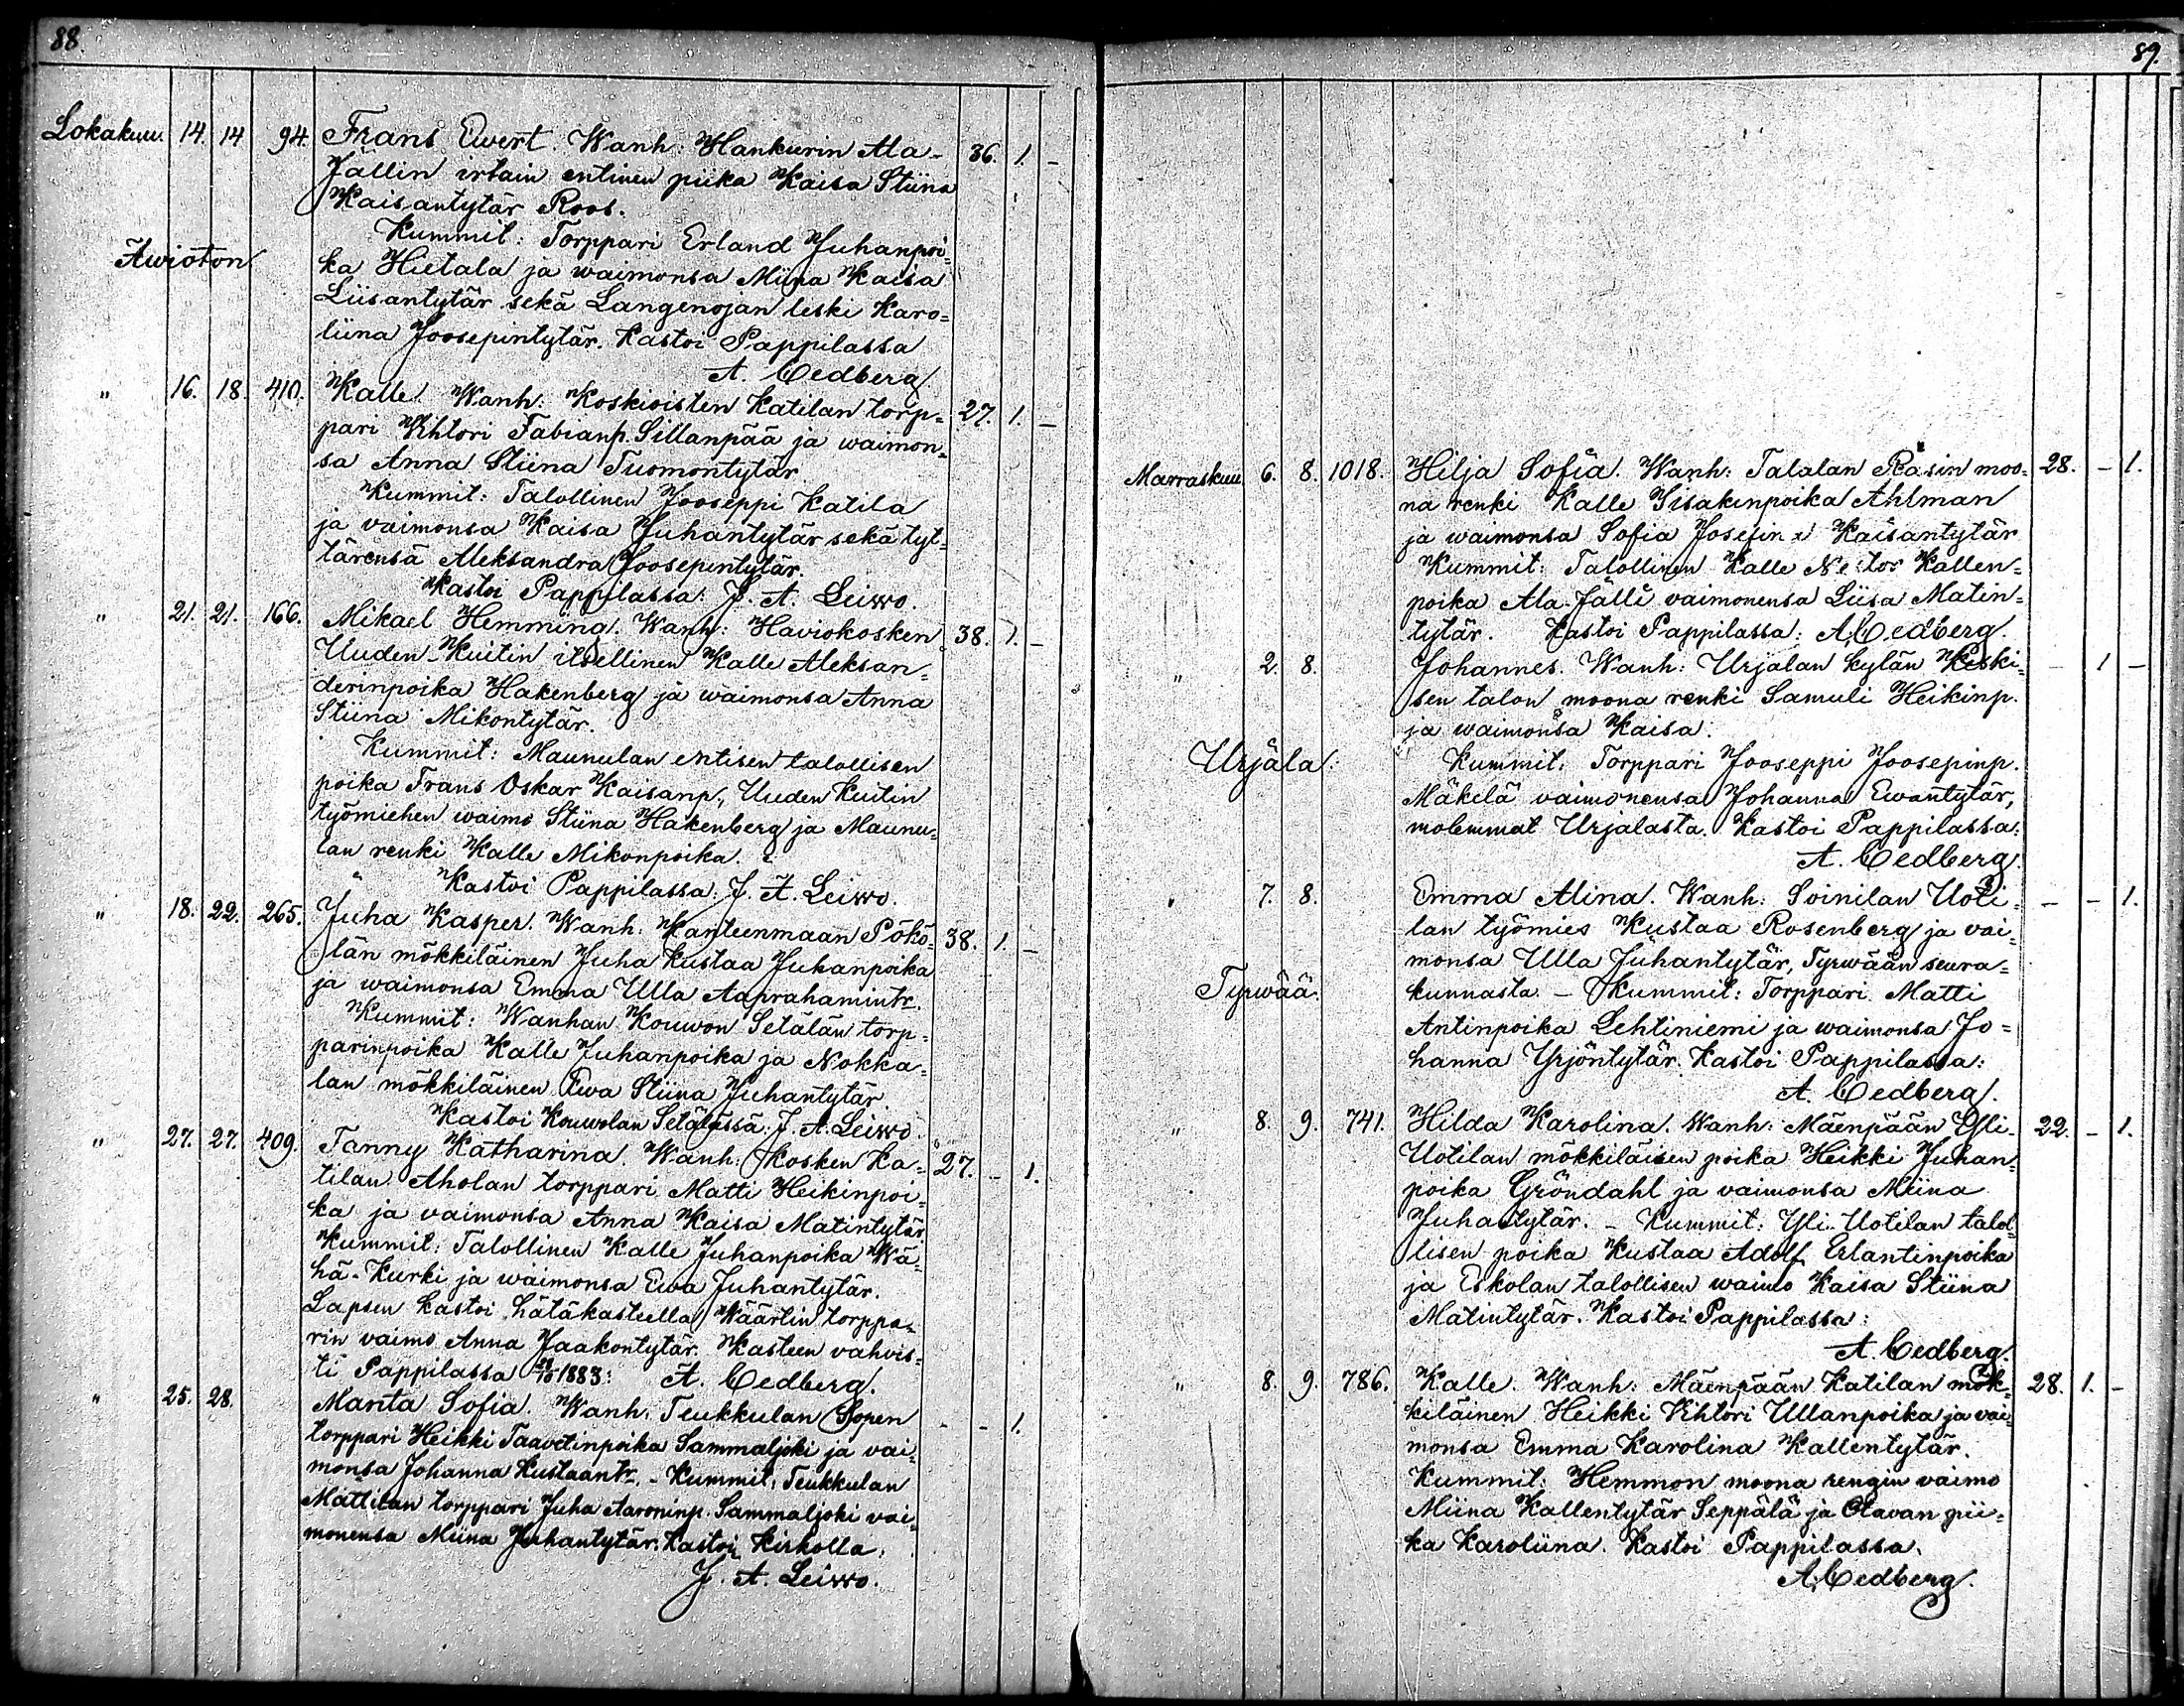 88.
Lokakuu. 14. 14 94. Frans Ewert. Wanh: Hankurin Ala- 36. 1. -
Jällin irtain entinen piika Kaisa Stiina
Kaisantytär Roos.
Kummit: Torppari Erland Juhanpoi=
Awioton ka Hietala ja waimonsa Miina Kaisa
Liisantytär sekä Langenojan leski Karo=
liina Joosepintytär. Kastoi Pappilassa
A. Cedberg.
" 16. 18. 410. Kalle. Wanh: Koskioisten Katilan torp= 27. 1. -
pari Vihtori Fabianp. Sillanpää ja waimon=
sa Anna Stiina Tuomontytär.
Kummit: Talollinen Jooseppi Katila
ja vaimonsa Kaisa Juhantytär sekä tyt=
tärensä Aleksandra Joosepintytär.
Kastoi Pappilassa: J. A. Leiwo.
" 21. 21. 166. Mikael Hemming. Wanh: Haviokosken 38. 1. -
Uuden-Kuitin itsellinen Kalle Aleksan=
derinpoika Hakenberg ja waimonsa Anna
Stiina Mikontytär.
Kummit: Maunulan entisen talollisen
poika Frans Oskar Kaisanp., Uuden Kuitin
työmiehen waimo Stiina Hakenberg ja Maunu=
lan renki Kalle Mikonpoika.
Kastoi Pappilassa: J. A. Leiwo.
" 18. 22. 265. Juha Kasper. Wanh: Kanteenmaan Pökö= 38. 1. -
län mökkiläinen Juha Kustaa Juhanpoika
ja waimonsa Emma Ulla Aaprahamintr.
Kummit: Wanhan Kouwon Setälän torp=
parinpoika Kalle Juhanpoika ja Nokka=
lan mökkiläinen Ewa Stiina Juhantytär.
Kastoi Kouwolan Setälässä: J. A. Leiwo.
" 27. 27. 409. Fanny Katharina. Wanh: Kosken Ka= 27. - 1.
tilan Aholan torppari Matti Heikinpoi=
ka ja vaimonsa Anna Kaisa Matintytär.
Kummit: Talollinen Kalle Juhanpoika Wä=
hä-Kurki ja waimonsa Ewa Juhantytär.
Lapsen kastoi hätäkasteella Wäärtin torppa=
rin vaimo Anna Jaakontytär. Kasteen vahvis=
ti Pappilassa 1883: A. Cedberg.
" 25. 28. Manta Sofia. Wanh: Teukkulan Sopen - - 1.
torppari Heikki Taavetinpoika Sammaljoki ja vai=
monsa Johanna Kustaantr. - Kummit: Teukkulan
Mattilan torppari Juha Aaroninp. Sammaljoki vai=
monensa Miina Juhantytär. Kastoi Kirkolla:
J. A. Leiwo.
89.
Marraskuu. 6. 8. 1018. Hilja Sofia. Wanh: Talalan Räsin moo= 28. - 1.
na renki Kalle Iisakinpoika Ahlman
ja waimonsa Sofia Josefina Kaisantytär
Kummit: Talollinen Kalle Nestor Kallen=
poika Ala-Jälli vaimonensa Liisa Matin=
tytär. Kastoi Pappilassa: A. Cedberg.
" 2. 8. Johannes. Wanh: Urjalan kylän Keski= - 1 -
sen talon moona renki Samuli Heikinp.
ja waimonsa Kaisa.
Urjala: Kummit: Torppari Jooseppi Joosepinp.
Mäkelä vaimonensa Johanna Ewantytär,
molemmat Urjalasta. Kastoi Pappilassa:
A. Cedberg.
" 7. 8. Emma Alina. Wanh: Soinilan Uoti= - - 1.
lan työmies Kustaa Rosenberg ja vai=
monsa Ulla Juhantytär, Tyrwään seura=
Tyrwää. kunnasta. - Kummit: Torppari Matti
Antinpoika Lehtiniemi ja waimonsa Jo=
hanna Yrjöntytär. Kastoi Pappilassa:
A. Cedberg.
" 8. 9. 741. Hilda Karolina. Wanh: Mäenpään Yli- 22. - 1.
Uotilan mökkiläisen poika Heikki Juhan=
poika Gröndahl ja vaimonsa Miina
Juhantytär. - Kummit: Yli-Uotilan talol=
lisen poika Kustaa Adolf Erlantinpoika
ja Eskolan talollisen waimo Kaisa Stiina
Matintytär. Kastoi Pappilassa:
A. Cedberg.
" 8. 9. 786. Kalle. Wanh: Mäenpään Katilan mök= 28. 1. -
kiläinen Heikki Vihtori Ullanpoika ja vai=
monsa Emma Karolina Kallentytär.
Kummit: Hemmon moona rengin vaimo
Miina Kallentytär Seppälä ja Olavan pii=
ka Karoliina. Kastoi Pappilassa.
A. Cedberg.